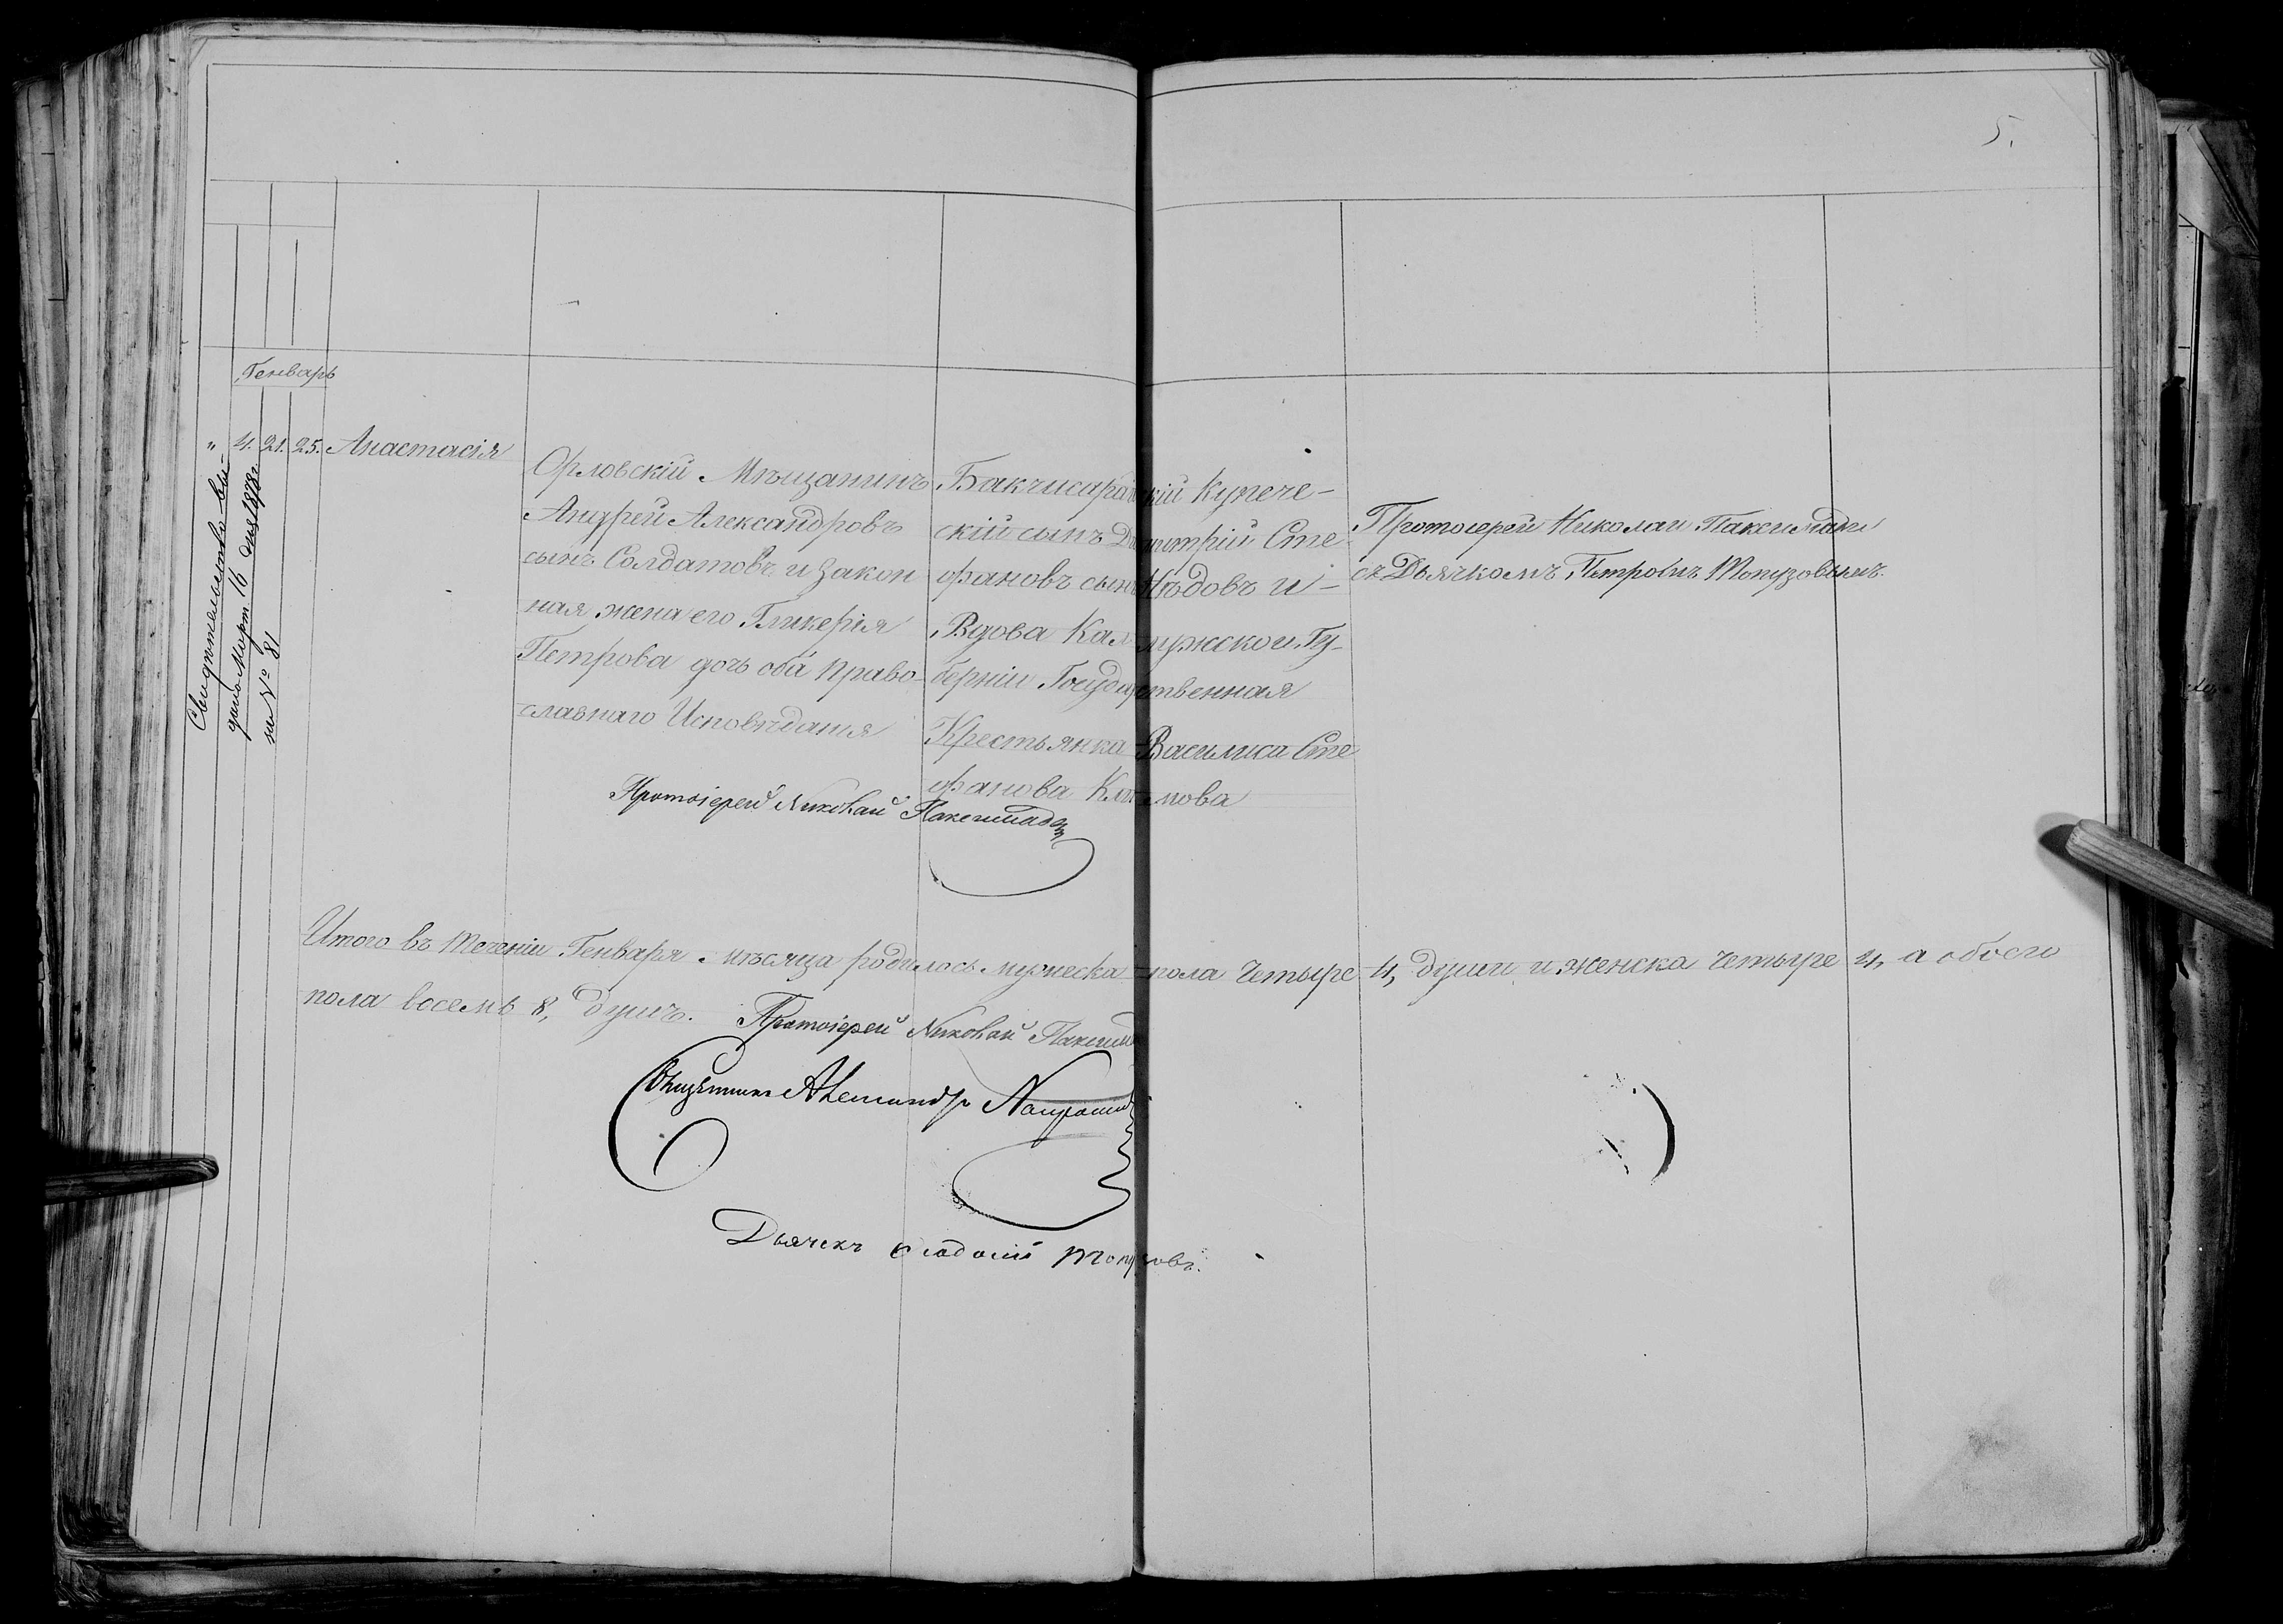 5.
Генварь
" 4. 21. 25. Анастасія
Свидѣтельство вы-
дано Март. 16 дня 1878 г.
за № 81
Орловскій Мѣщанинъ
Андрей Александровъ
сынъ Солдатовъ и закон
ная жена его Гликерія
Петрова дочь оба право-
славнаго Исповѣданія
Протоіерей Николай
Бакчисарайскій Купече-
скій сынъ Димитрій Сте
фановъ сынъ и-
Вдова Калужской Гу-
берніи Государственная
Крестьянка Василиса Сте
фанова Климова
Протоіерей Николай
съ Дьячкомъ Петромъ Топузовымъ.
Итого въ теченіи Генваря мѣсяца родилось мужеска пола четыре 4, души и женска четыре 4, а обоего
пола восемь 8, душъ. Протоіерей Николай
Священникъ Александръ
Дьячекъ Топузовъ.